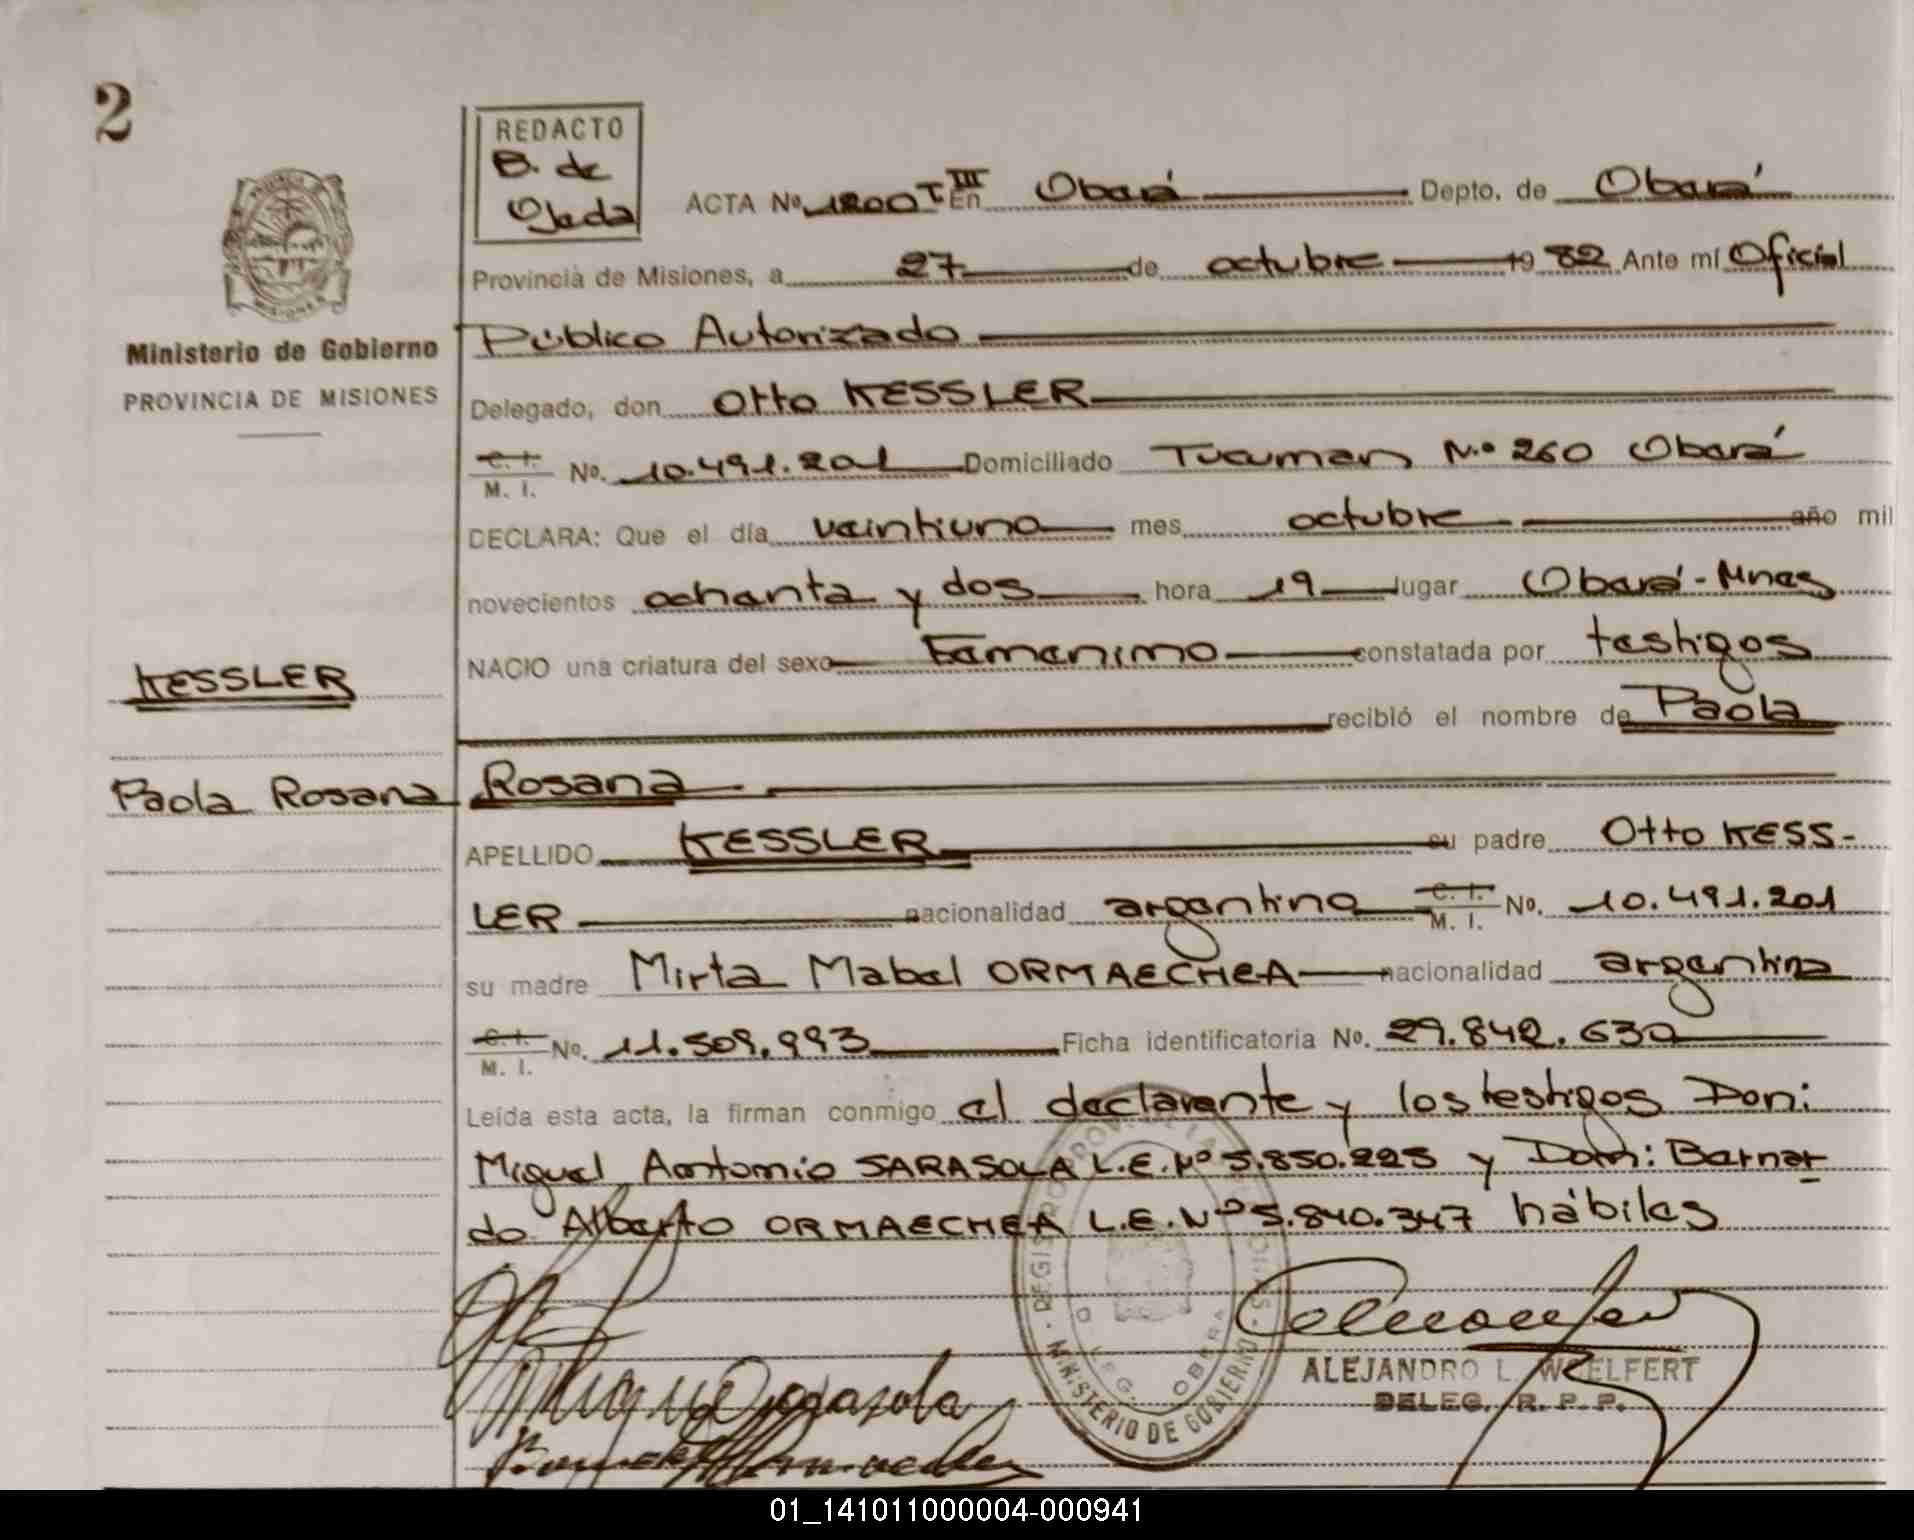 2
REDACTO
B. de
Ojeda
ACTA No. 1200 T III En Oberá Depto. de Oberá
Provincia de Misiones, a 27 de octubre 1982 Ante mí Oficial
Ministerio de Gobierno
PROVINCIA DE MISIONES
Público Autorizado
Delegado, don Otto KESSLER
C. I. M. I. No. 10.491.201 Domiciliado Tucuman N.º 260 Oberá
DECLARA: Que el día veintiuno mes octubre año mil
novecientos ochenta y dos hora 19 lugar Oberá - Mnes
NACIO una criatura del sexo Femenino constatada por testigos
KESSLER
recibió el nombre de Paola
Paola Rosana
Rosana
APELLIDO KESSLER su padre Otto KESS-
LER nacionalidad argentino C. I. M. I. No. 10.491.201
su madre Mirta Mabel ORMAECHEA nacionalidad argentina
C. I. M. I. No. 11.509.993 Ficha identificatoria No. 29.842.630
Leída esta acta, la firman conmigo el declarante y los testigos Don:
Miguel Antonio SARASOLA L.E. Nº 5.850.225 y Don: Bernar
do Alberto ORMAECHEA L.E. Nº 5.840.347 hábiles
MINISTERIO DE GOBIERNO
ALEJANDRO L. WOELFERT
DELEG. R. P. P.
01_141011000004-000941